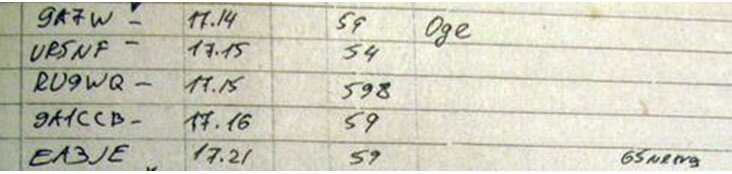 9A7W - 17.14 59 Oge
UR5NF - 17.15 54
RU9WQ - 17.15 598
9A1CCB - 17.16 59
EA3JE 17.21 59